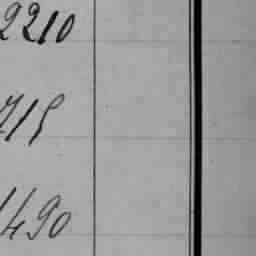 2210
715
1490